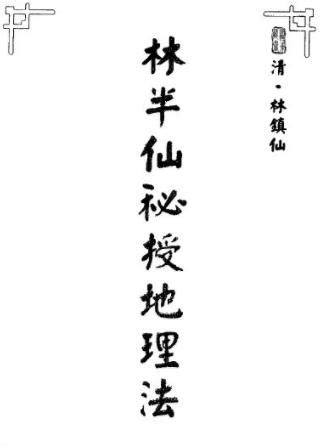 清·林鎮仙
林半仙秘授地理法